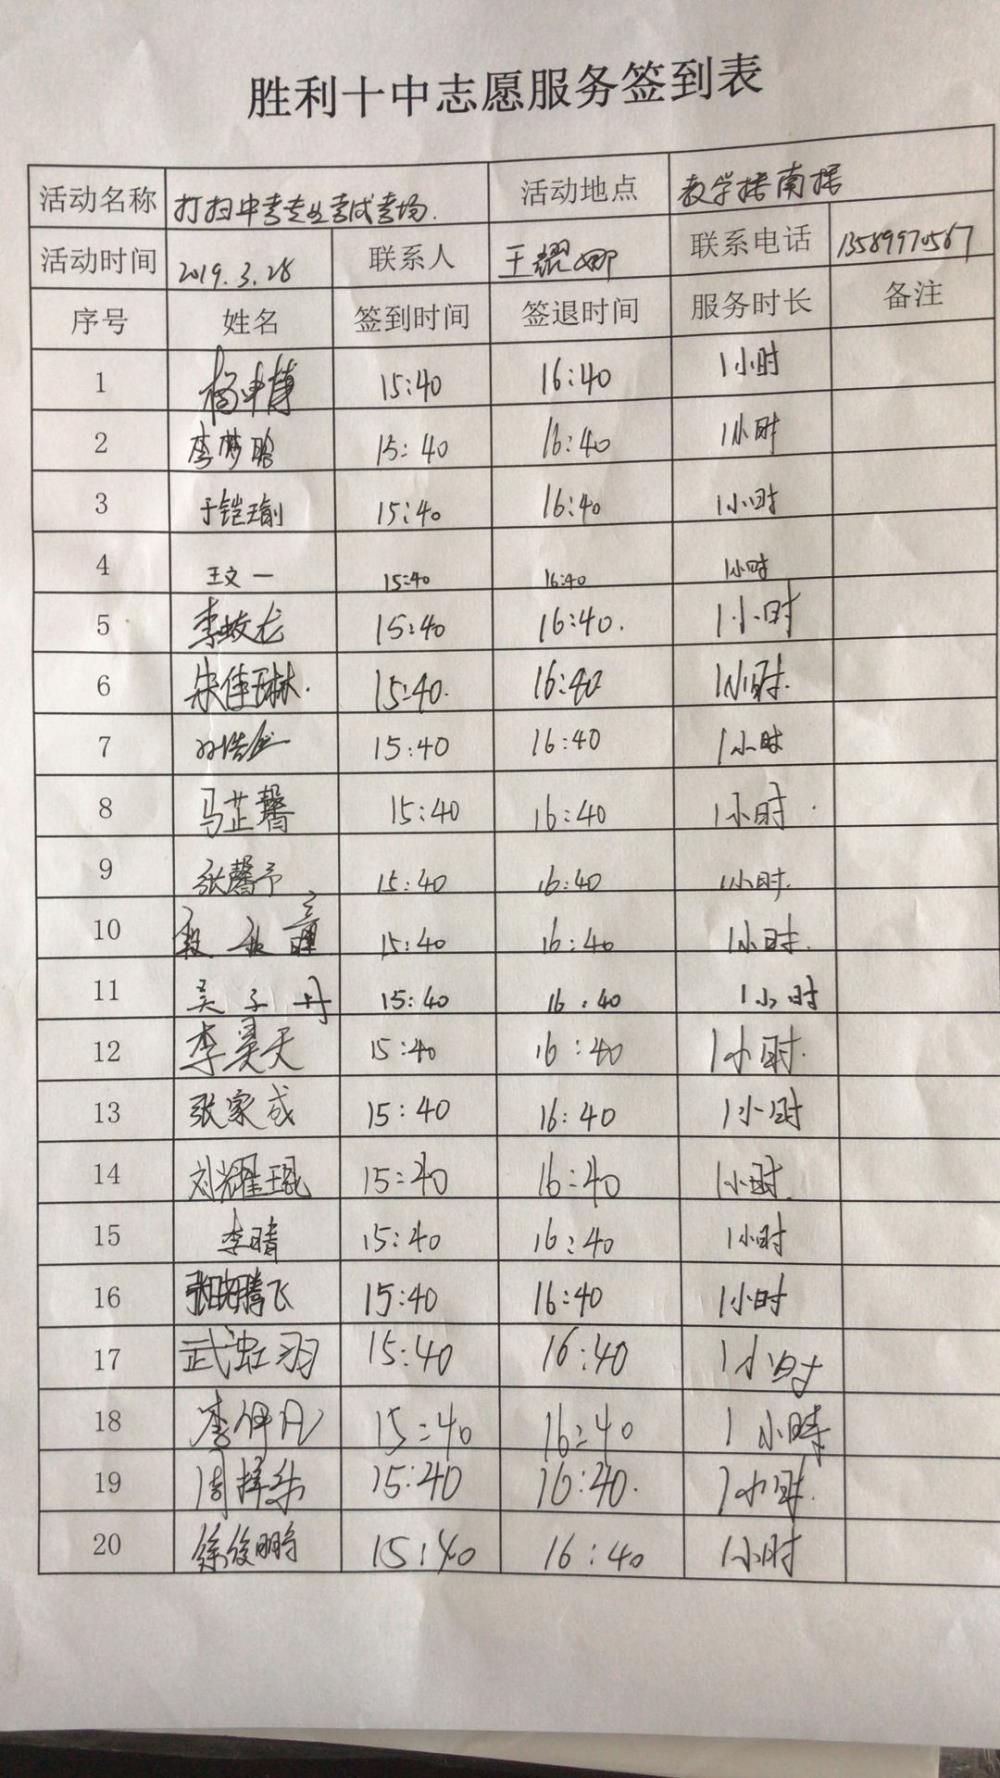 胜利十中志愿服务签到表
活动名称 打扫中考专业考试考场. 活动地点 教学楼南楼
活动时间 2019.3.28 联系人 王耀娜 联系电话 13589970567
序号 姓名 签到时间 签退时间 服务时长 备注
1 杨申博 15:40 16:40 1小时
2 李梦晗 15:40 16:40 1小时
3 于铠瑜 15:40 16:40 1小时
4 王文一 15:40 16:40 1小时
5 李蛟龙 15:40 16:40. 1小时
6 宋佳琳. 15:40. 16:40 1小时.
7 15:40 16:40 1小时
8 马芷馨 15:40 16:40 1小时
9 张馨予 15:40 16:40 1小时.
10 15:40 16:40 1小时.
11 吴子丹 15:40 16:40 1小时
12 李昊天 15:40 16:40 1小时.
13 张家成 15:40 16:40 1小时
14 刘耀琨 15:40 16:40 1小时.
15 李晴 15:40 16:40 1小时
16 飞 15:40 16:40 1小时
17 武虹羽 15:40 16:40 1小时
18 李伊凡 15:40 16:40 1小時
19 周 15:40 16:40. 1小时.
20 徐俊鹏 15:40 16:40 1小时